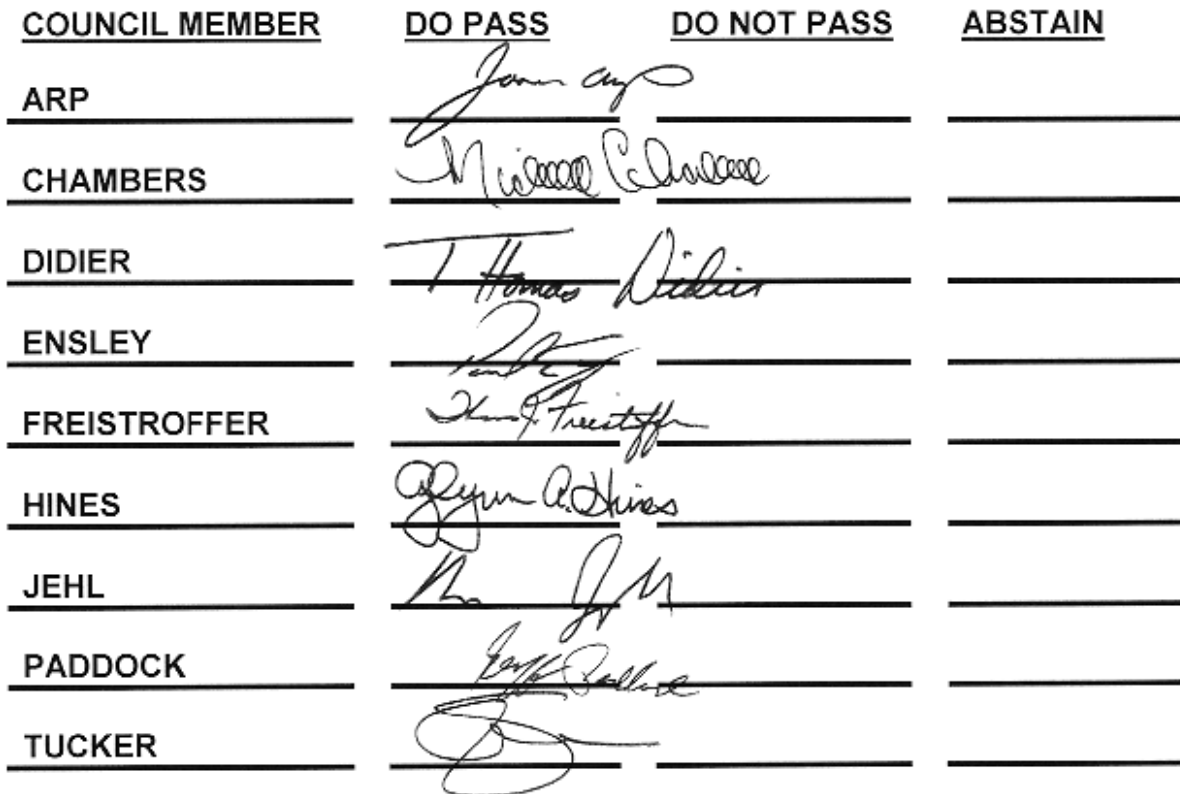 COUNCIL MEMBER DO PASS DO NOT PASS ABSTAIN
ARP
CHAMBERS
DIDIER Thomas Didier
ENSLEY
FREISTROFFER
HINES Glynn A. Hines
JEHL
PADDOCK
TUCKER